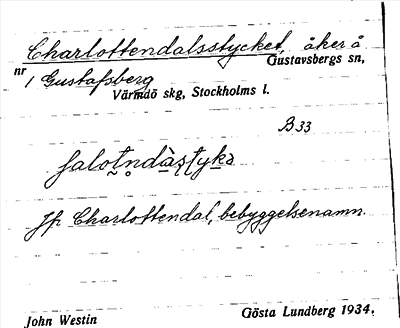 Charlottendalsstycket, åker å
Gustavsbergs sn,
nr
1 Gustafsberg
Värmdö skg, Stockholms l.
B 33
Jfr Charlottendal, bebyggelsenamn.
John Westin
Gösta Lundberg 1934.